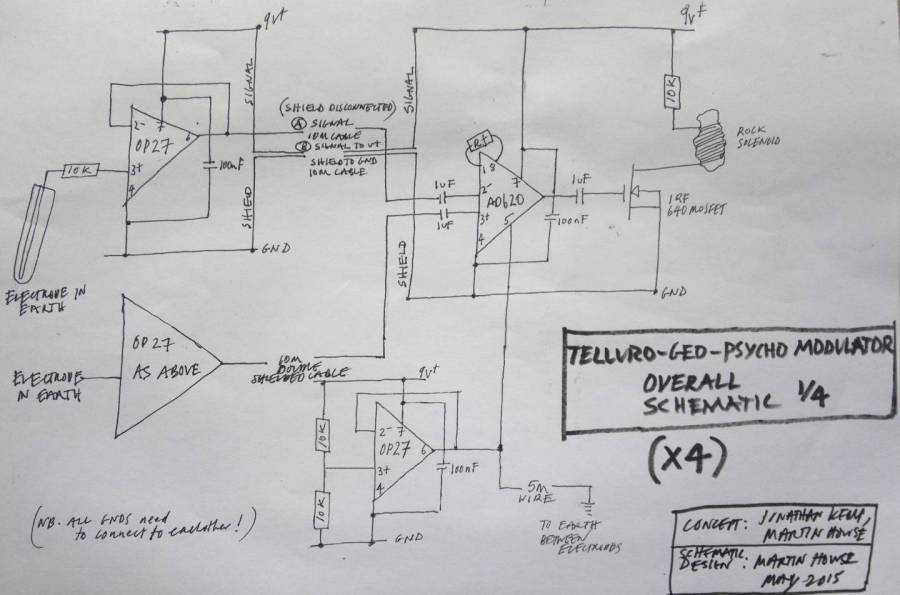 9V+
SIGNAL
2-
7
6
OP27
3+
4
10K
100nF
SHIELD
GND
ELECTRODE IN
EARTH
(SHIELD DISCONNECTED)
A SIGNAL
10M CABLE
B SIGNAL TO V+
SHIELD TO GND
10M CABLE
9V+
SIGNAL
1uF
1uF
SHIELD
1 8
2-
7
AD620
3+
5
4
100nF
1uF
10K
ROCK
SOLENOID
IRF
640 MOSFET
GND
OP27
AS ABOVE
ELECTRODE
IN EARTH
10M
DOUBLE
SHIELDED CABLE
9V+
10K
10K
2-
7
OP27
6
3+
4
100nF
GND
5M
WIRE
TO EARTH
BETWEEN
ELECTRODES
TELLURO-GEO-PSYCHO MODULATOR
OVERALL
SCHEMATIC 1/4
(X4)
(NB. ALL GNDS need
to connect to eachother!)
CONCEPT: JONATHAN KEMP,
MARTIN HOWSE
SCHEMATIC
DESIGN: MARTIN HOWSE
MAY 2015